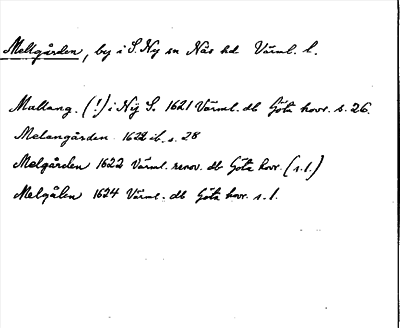 Mellgården, by i S. Ny sn Näs hd Värml. l.
Mallang. (!) i Ny S. 1621 Värml. db Göta hovr. s. 26.
Melangården 1622 ib. s. 28
Melgården 1622 Värml. renov. db Göta hovr. (s. 1.)
Melgålen 1624 Värml. db Göta hovr. s. 1.